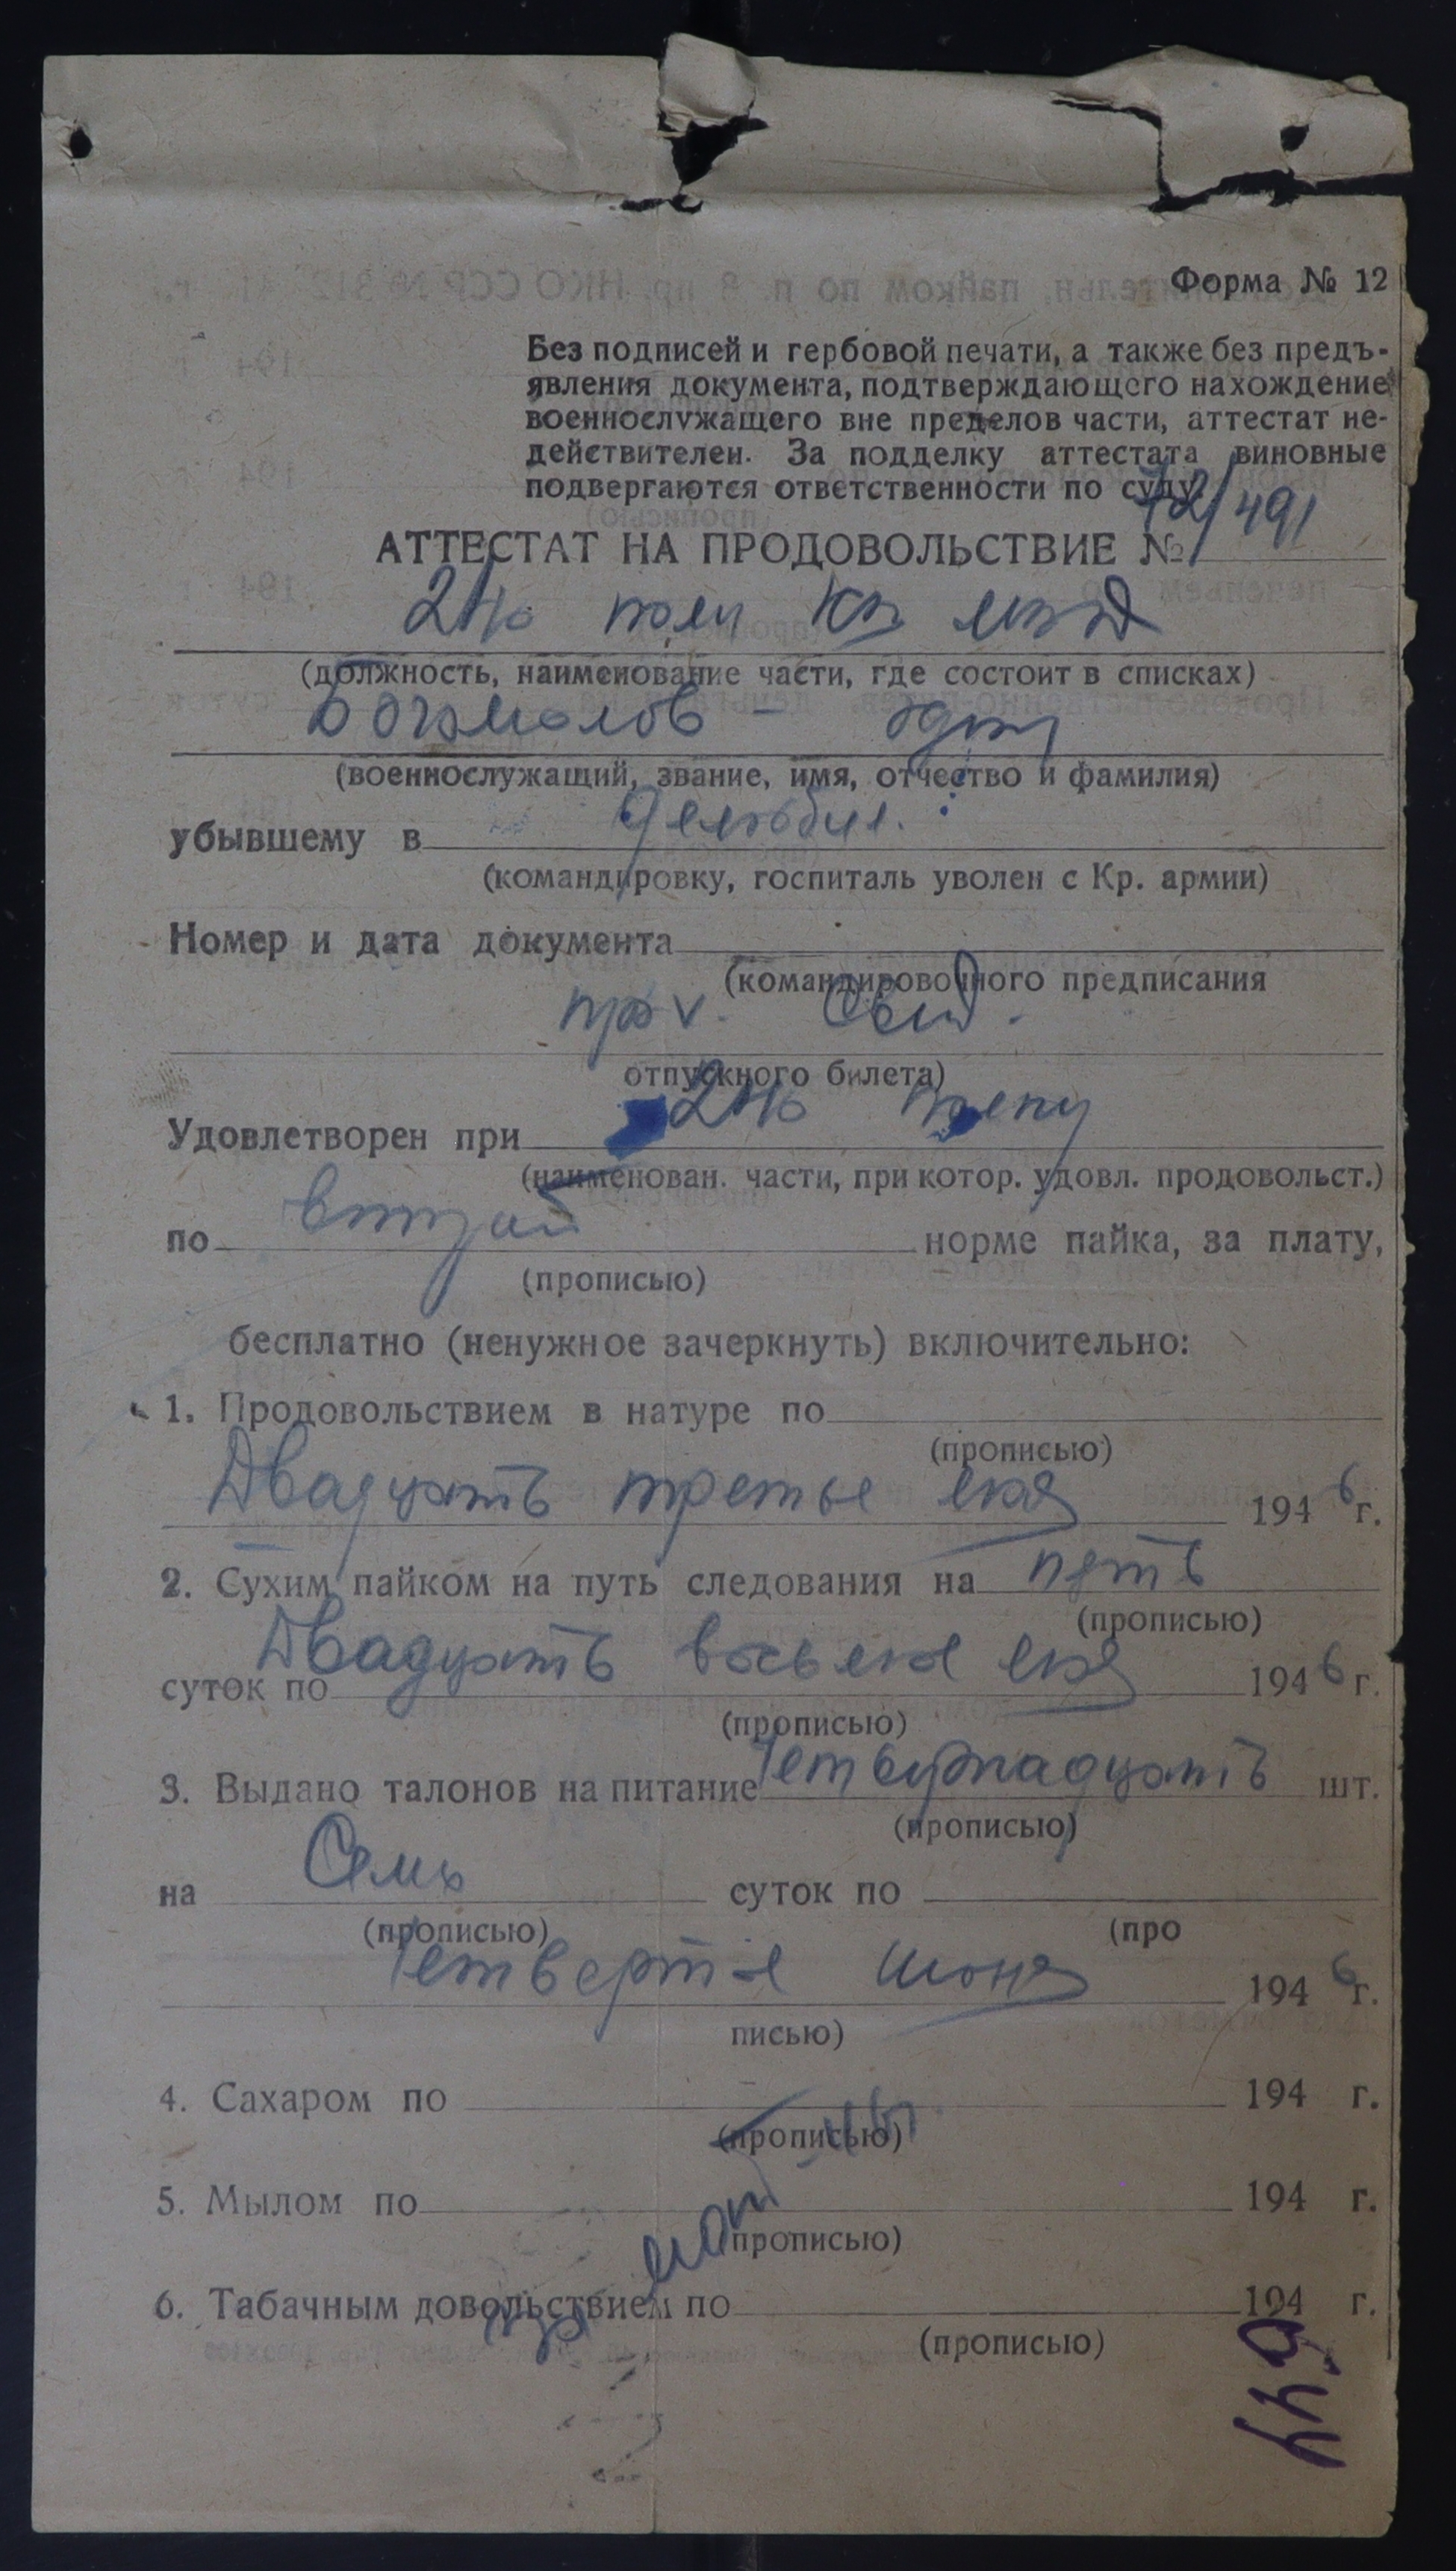 Форма № 12
Без подписей и гербовой печати, а также без предъ-
явления документа, подтверждающего нахождение
военнослужащего вне пределов части, аттестат не-
действителен. За подделку аттестата виновные
подвергаются ответственности по суду.
АТТЕСТАТ НА ПРОДОВОЛЬСТВИЕ № /491
(должность, наименование части, где состоит в списках)
Богомолов -
(военнослужащий, звание, имя, отчество и фамилия)
убывшему в
(командировку, госпиталь уволен с Кр. армии)
Номер и дата документа
(командировочного предписания
отпускного билета)
Удовлетворен при
(наименован. части, при котор. удовл. продовольст.)
по второй норме пайка, за плату,
(прописью)
бесплатно (ненужное зачеркнуть) включительно:
1. Продовольствием в натуре по
(прописью)
Двадцать третье мая 1946 г.
2. Сухим пайком на путь следования на пять
(прописью)
суток по Двадцать восьмое мая 1946 г.
(прописью)
3. Выдано талонов на питание Четырнадцать шт.
(прописью)
на Семь суток по
(прописью) (про
Четвертое июня 1946 г.
писью)
4. Сахаром по 194 г.
(прописью)
5. Мылом по 194 г.
(прописью)
6. Табачным довольствием по 194 г.
(прописью)